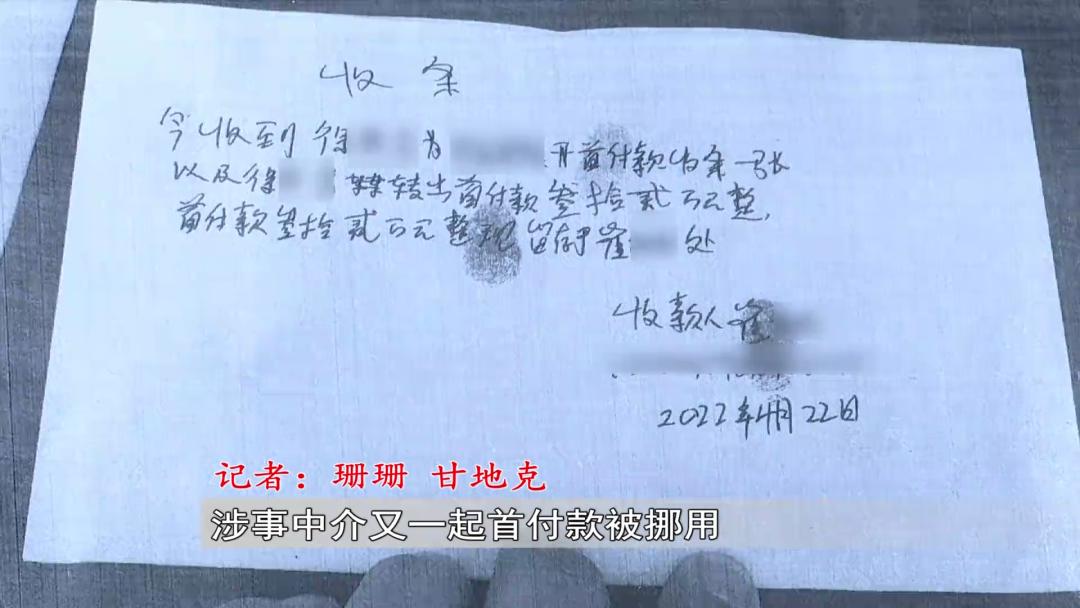 收条
今收到徐 为 开首付款收条一张
以及徐 转出首付款叁拾贰万元整,
首付款叁拾贰万元整现留存于崔 处
收款人 崔
2022年4月22日
记者：珊珊 甘地克
涉事中介又一起首付款被挪用